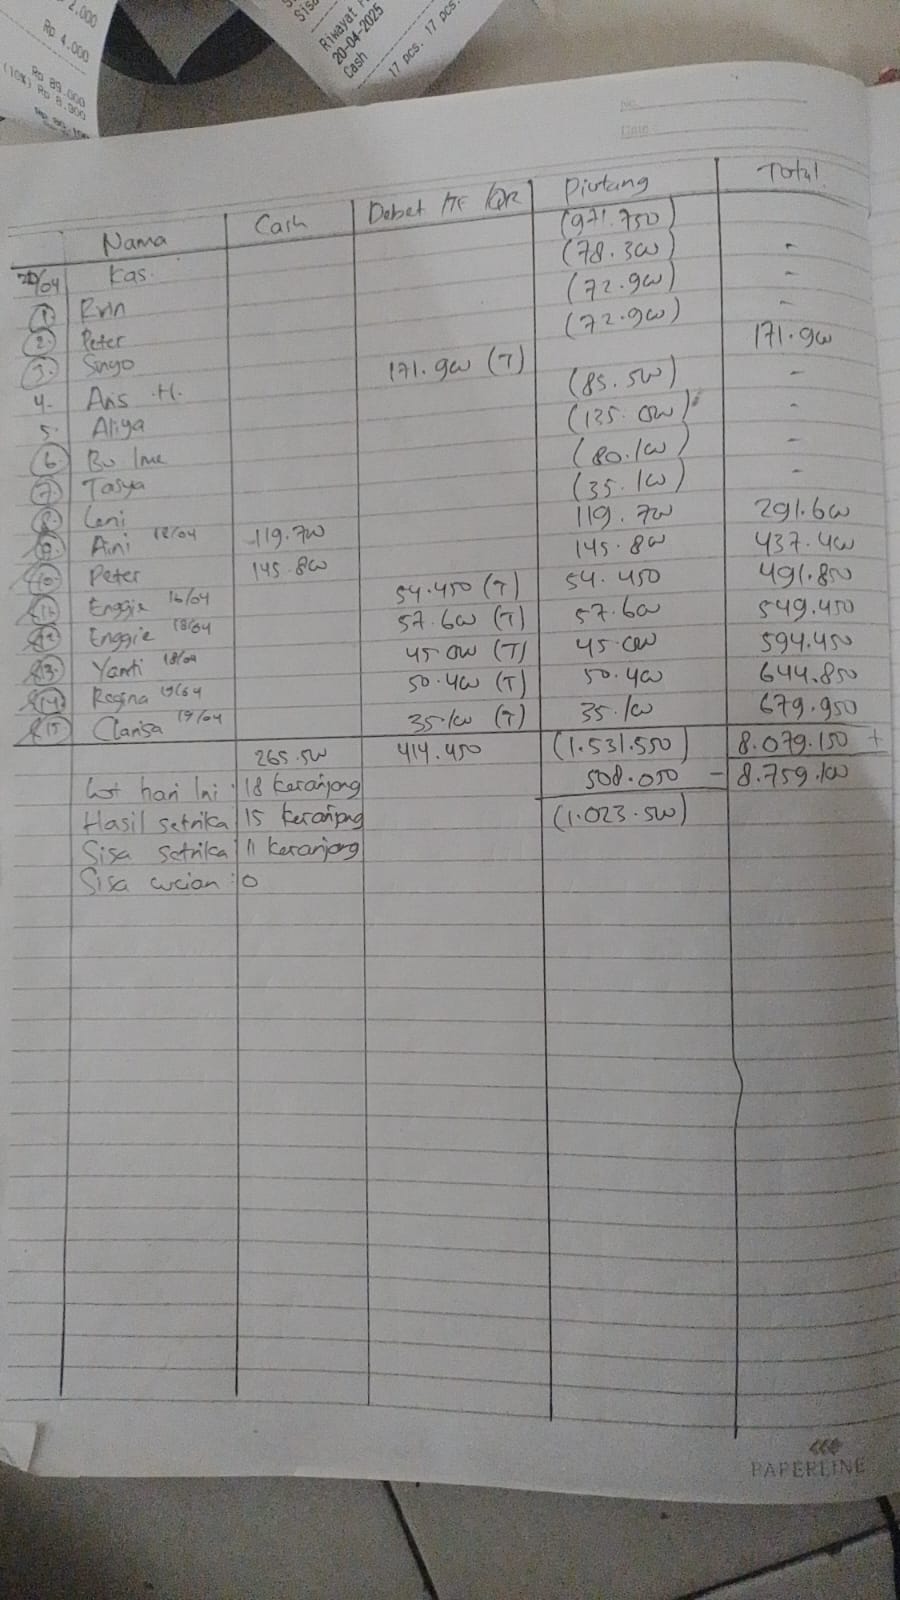 2.000
Rp 4.000
Rp 89.000
(10%) Rp 8.900
Riwayat
20-04-2025
Cash
17 pcs. 17 pcs.
No.
Date
Nama Cash Debet /TF /QR Piutang Total
20/04 Kas (971.750)
1. Rvin (78.300) -
2. Peter (72.900) -
3. Singo (72.900) -
4. Aris .H. 171.900 (T) 171.900
5. Aliya (85.500) -
6. Bu Ime (135.000) -
7. Tasya (80.100) -
8. Leni (35.100) -
9. Aini 12/04 119.700 119.700 291.600
10. Peter 145.800 145.800 437.400
11. Enggie 16/04 54.450 (T) 54.450 491.850
12. Enggie 18/04 57.600 (T) 57.600 549.450
13. Yanti 18/04 45.000 (T) 45.000 594.450
14. Regina 19/04 50.400 (T) 50.400 644.850
15. Clarisa 19/04 35.100 (T) 35.100 679.950
265.500 414.450 (1.531.550) 8.079.150 +
Lot hari Ini : 18 keranjang 508.050 - 8.759.100
Hasil setrika 15 keranjang (1.023.500)
Sisa setrika 11 keranjang
Sisa cucian : 0
PAPERLINE